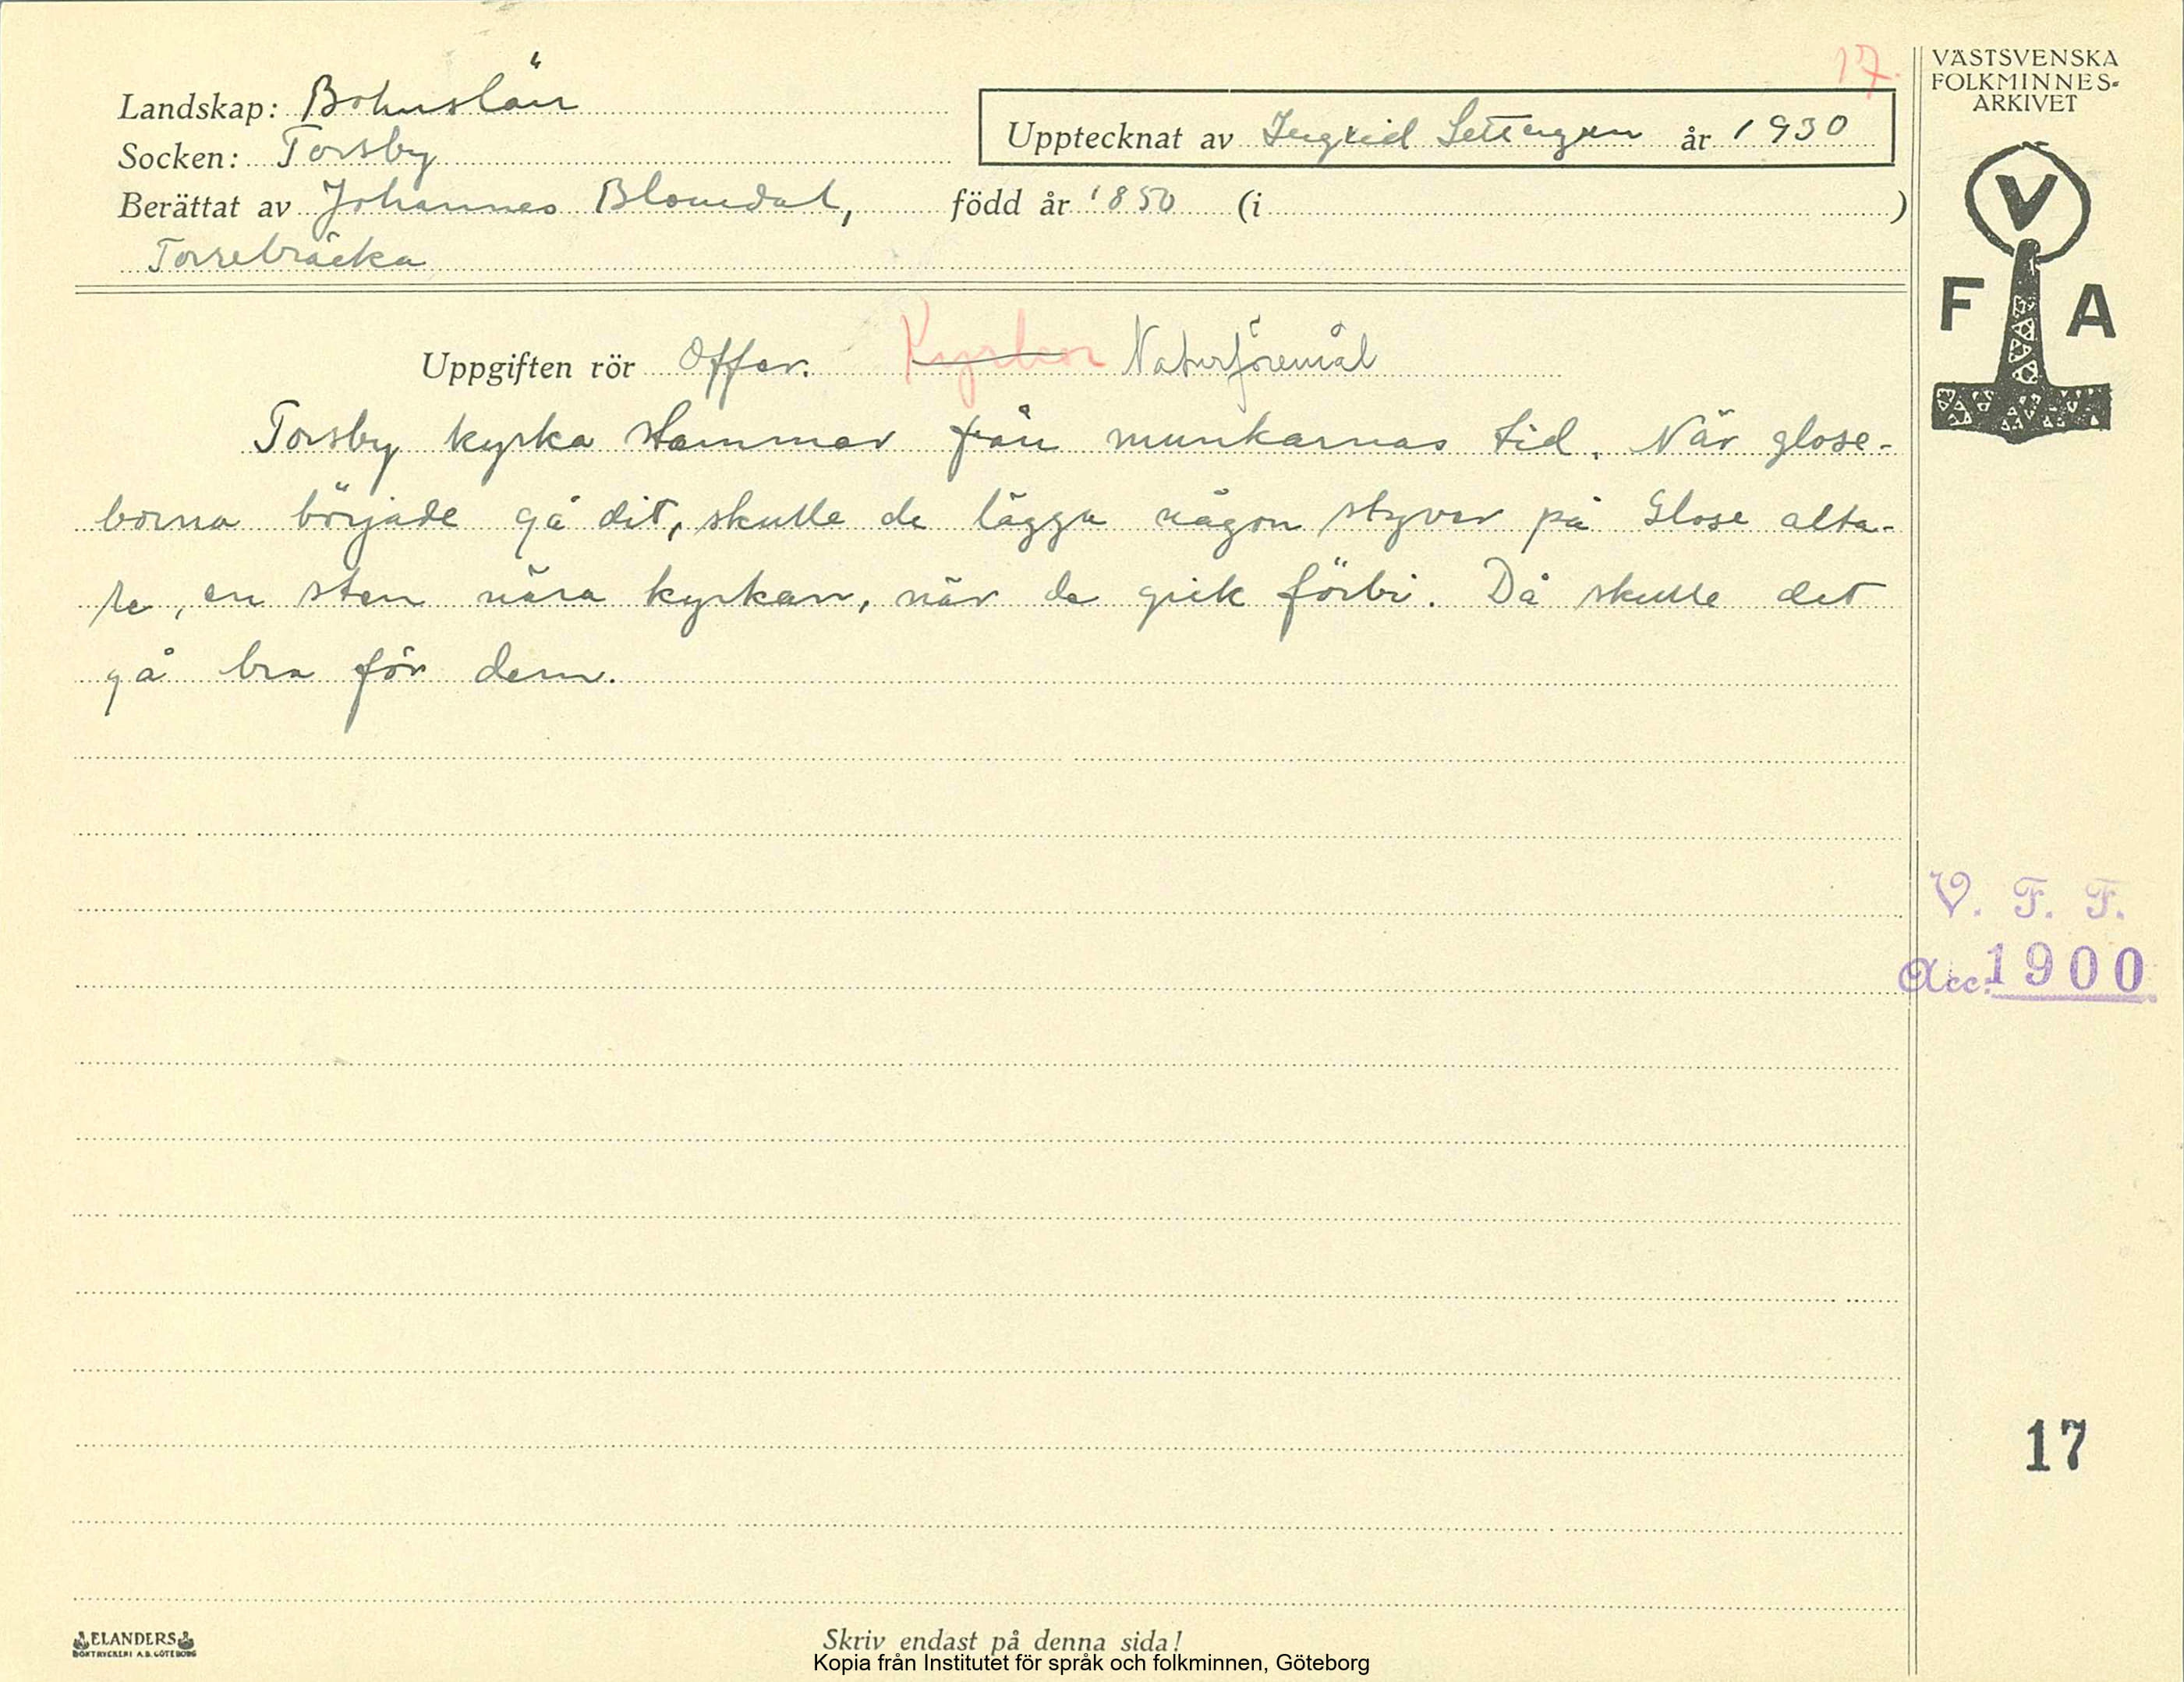 17.
VÄSTSVENSKA
FOLKMINNES-
ARKIVET
Landskap: Bohuslän
Socken: Torsby
Upptecknat av Ingrid år 1930
Berättat av Johannes Blomdal, född år 1850 (i )
Torrebräcka
V
F A
Uppgiften rör Offer. Kyrkor Naturföremål
Torsby kyrka stammar från munkarnas tid. När glose-
borna började gå dit, skulle de lägga någon styver på Glose alta-
re, en sten nära kyrkan, när de gick förbi. Då skulle det
gå bra för dem.
V. F. F.
Acc. 1900
17
ELANDERS
BOKTRYCKERI A.B. GÖTEBORG
Skriv endast på denna sida!
Kopia från Institutet för språk och folkminnen, Göteborg